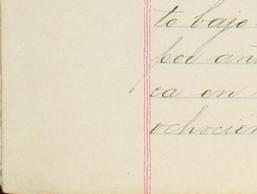 to bajo
por añ
ca en
ochocien